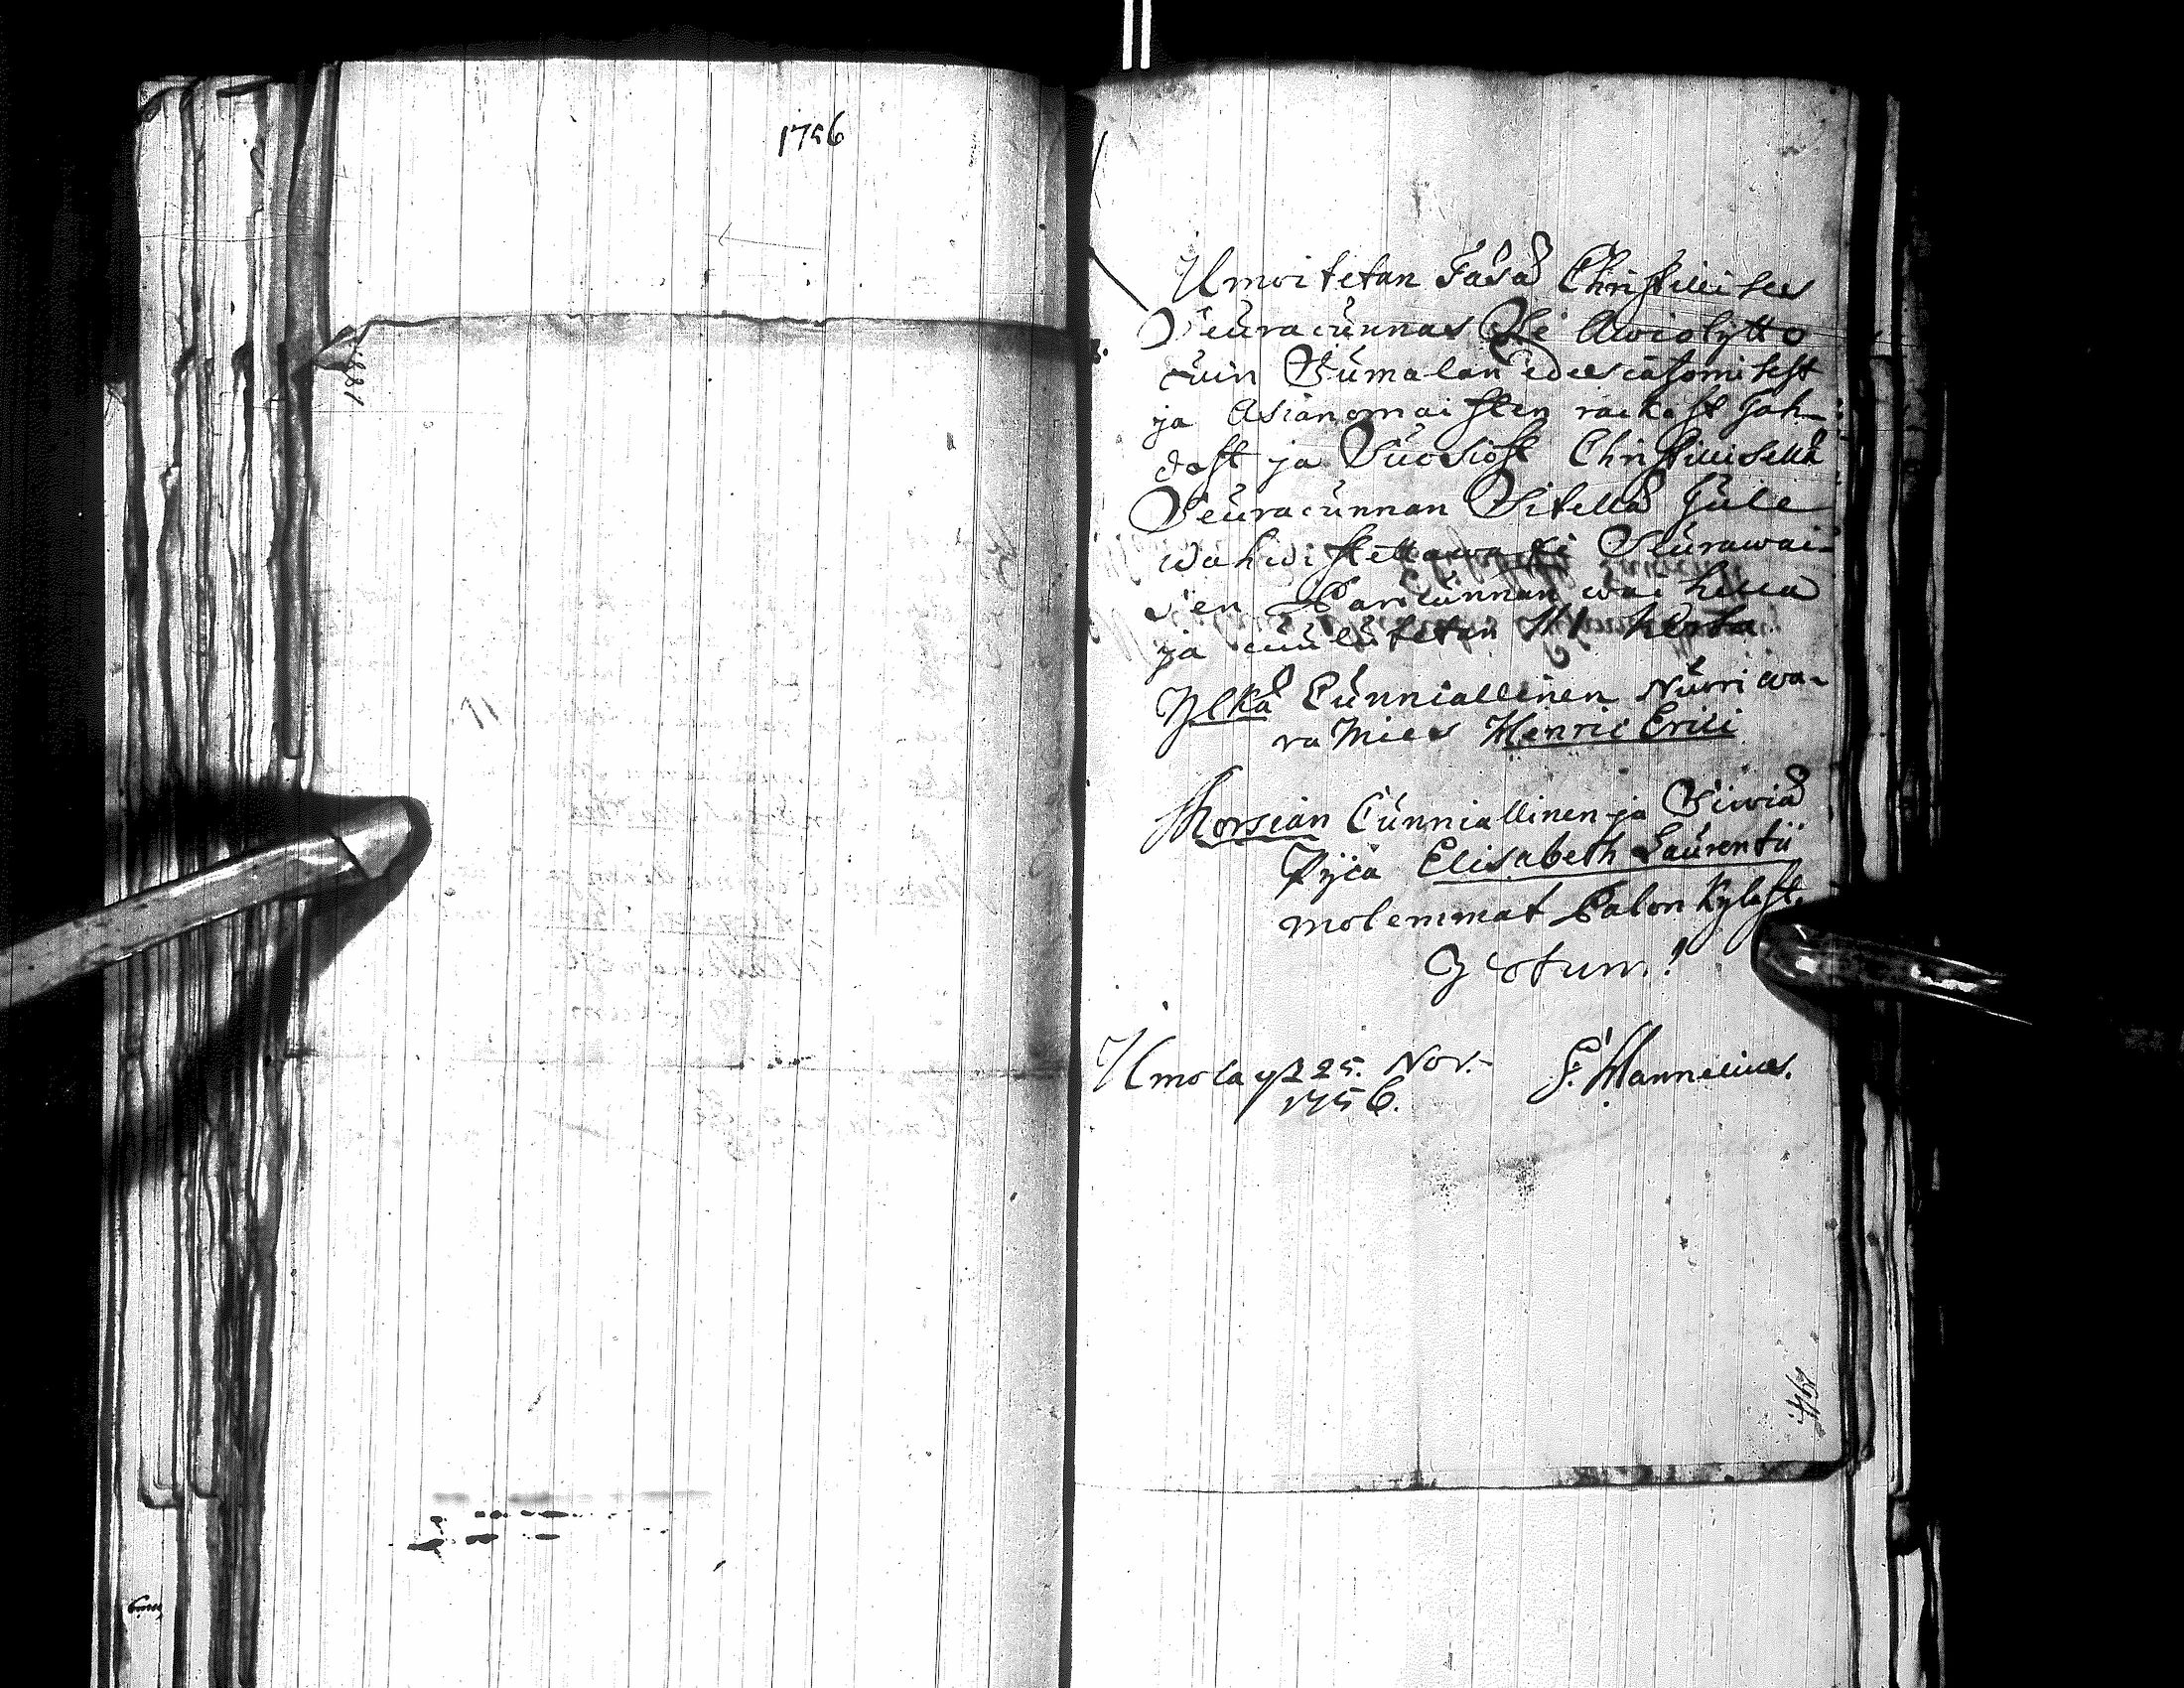 1756
Ilmoitetan Täsä Christilises
Seuracunnas Se Awiolijtto
cuin Jumalan edes cadzomisest
ja Asianomaisten rackast Joh-
dost ja Suosiost Christilisellä
Seuracunnan Sitellä Jule
wahwistettawaxi Seurawai-
sen Pariscunnan waihella
ja cuulutetan III kerta
Ylkä Cunniallinen Nuori wa-
ra Mies Henric Erici
Morsian Cunniallinen ja Siwiä
Pijca Elisabeth Laurentii
molemmat Palon Kyläst.
Votum!
Ulmola yst 25. Nov.
1756.
G. Mannelius.